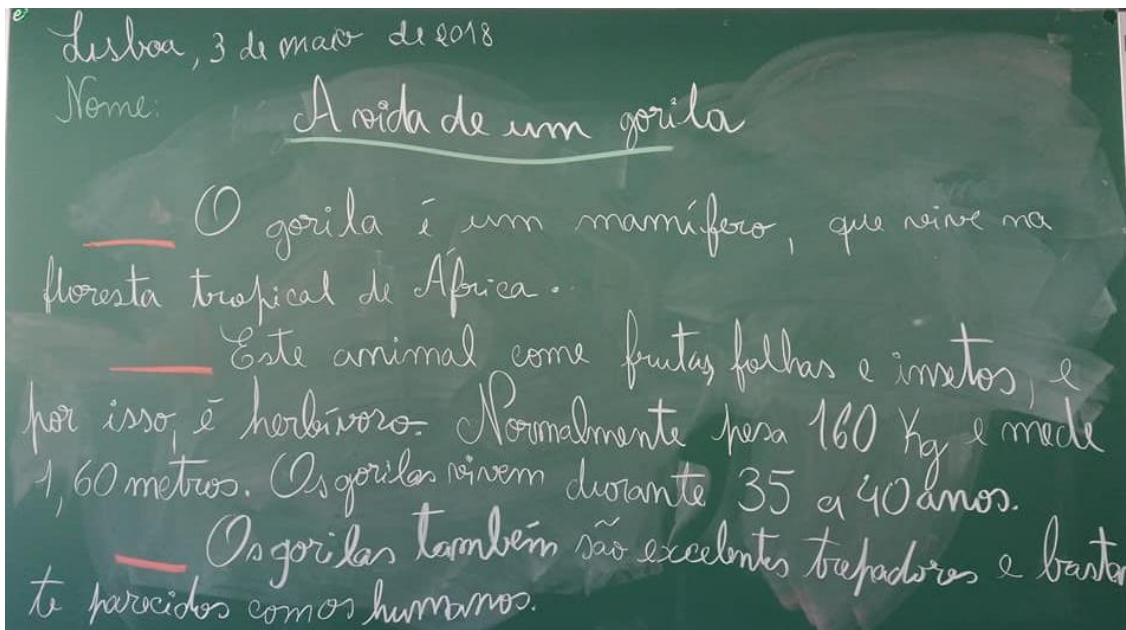 Lisboa, 3 de maio de 2018
Nome:
A vida de um gorila
O gorila é um mamífero, que vive na
floresta tropical de África.
Este animal come frutas, folhas e insetos, e
por isso, é herbívoro. Normalmente pesa 160 Kg e mede
1,60 metros. Os gorilas vivem durante 35 a 40 anos.
Os gorilas também são excelentes trepadores e bastan
te parecidos com os humanos.